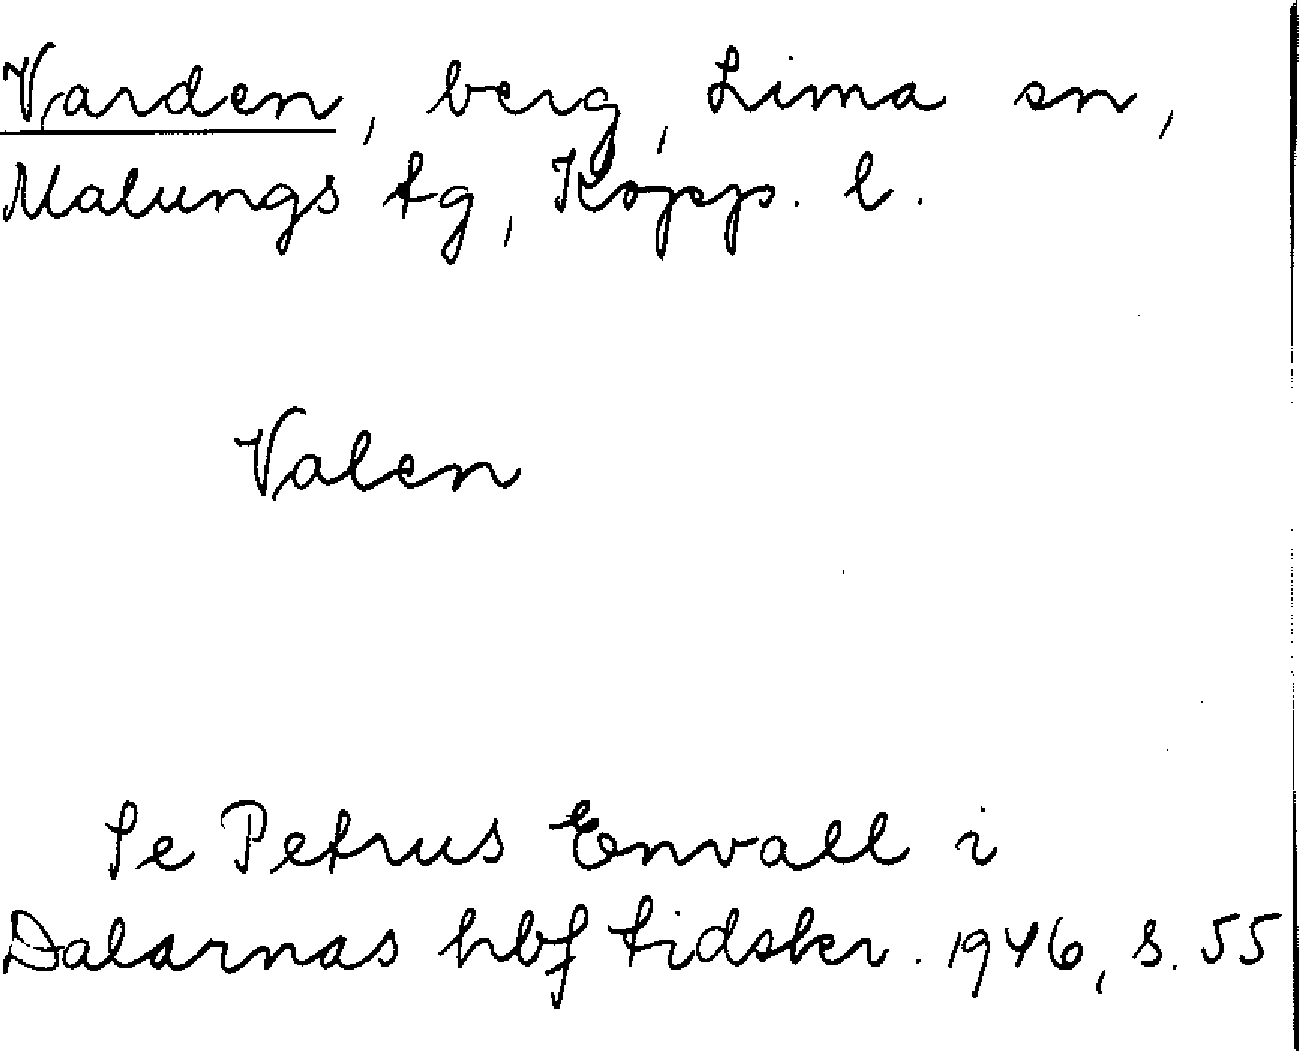 Varden, berg, Lima sn,
Malungs tg, Kopp. l.
Valen
Se Petrus Envall i
Dalarnas hbf tidskr. 1946, s. 55